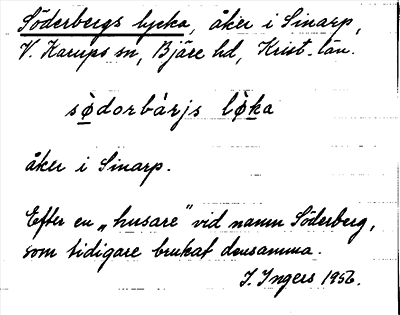 Söderbergs lycka, åker i Sinarp,
V. Karups sn, Bjäre hd, Krist. län.
sò̤dorbàrjs lò̤ka
åker i Sinarp.
Efter en „husare" vid namn Söderberg,
som tidigare brukat densamma.
I. Ingers 1956.